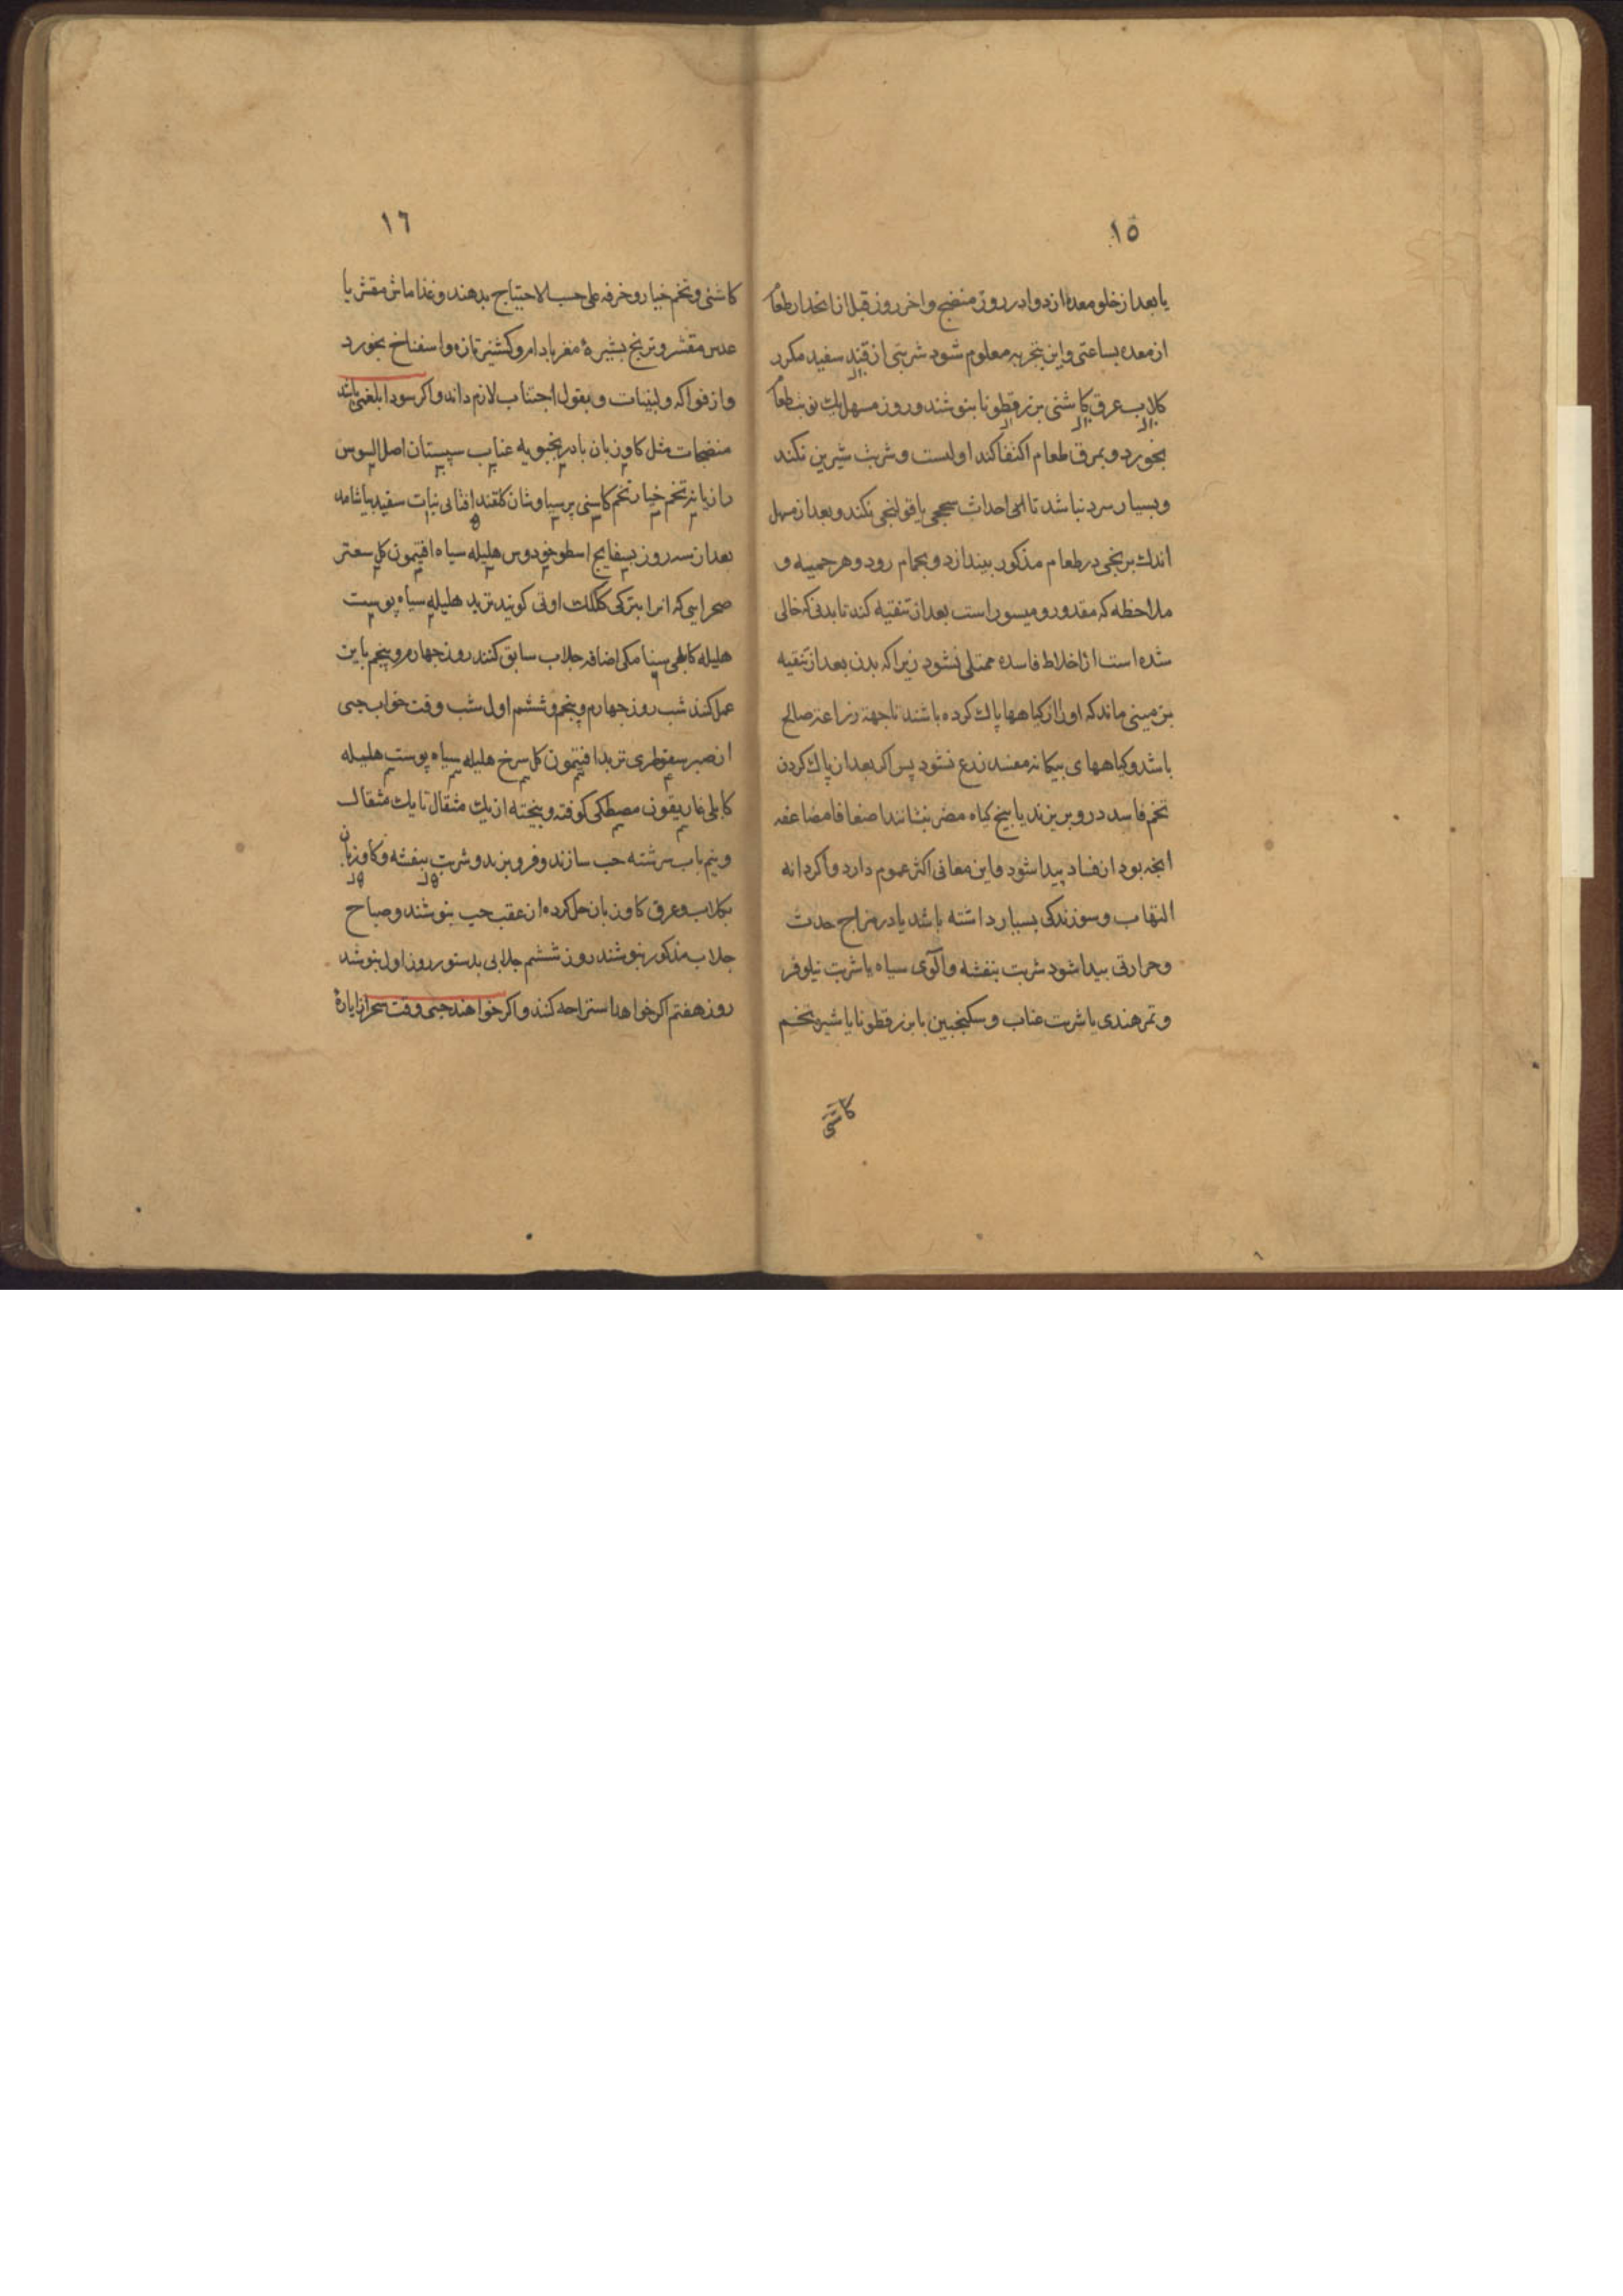 ١٥
يا بعد از خلو معده از دوا در روز منضج و اخر روز قبل از انحدار طعام
از معده بساعتی و این بتجربه معلوم شود شربتی از قند سفید مکرر
کلاب عرق کاشنی بزرقطونا بنوشند و روز مسهل یک نوبت طعام
بخورد و بمرق طعام اکتفا کند اولیست و شربت شیرین نکند
و بسیار سرد نباشد تا الی احداث سحجی یا قولنجی نکند و بعد از مسهل
اندک برنجی در طعام مذکور بیندازد و بحمام رود و هر حمیه و
ملاحظه که مقدور و میسور است بعد از تنقیه کند تا بدنی که خالی
شده است از اخلاط فاسده ممتلی نشود زیرا که بدن بعد از تنقیه
بزمینی ماند که او را از کیاهها پاک کرده باشند تا جهة زراعة صالح
باشد و کیاههای بیکانه مفسد زرع نشود پس اکر بعد از پاک کردن
تخم فاسد درو بریزند یا بیخ کیاه مضر بنشانند اضعافا مضاعفه
انچه بود از فساد پیدا شود و این معانی اکثر عموم دارد و اکر دانه
التهاب و سوزندکی بسیار داشته باشد یا در مزاج حدت
و حرارتی پیدا شود شربت بنفشه و آلوی سیاه یا شربت نیلوفر
و تمر هندی یا شربت عناب و سکنجبین با بزرقطونا یا شیره تخم
کاشنی
١٦
کاشنی و تخم خیار و خرفه علی حسب الاحتیاج بدهند و غذا ماش مقشر با
عدس مقشر و برنج بشیرهٔ مغز بادام و کشنیز تازه و اسفناخ بخورد
و از فواکه و لبنیات و بقول اجتناب لازم داند و اکر سودا بلغمی باشد
منضجات مثل کاوزبان بادرنجبویه عناب سپستان اصل السوس
رازیانه تخم خیار تخم کاسنی پرسیاوشان کلقند افتابی نبات سفید بیاشامد
بعد از سه روز بسفایج اسطوخودوس هلیله سیاه افتیمون کل سعتر
صحرایی که انرا بترکی کلک اوتی کویند تربد هلیله سیاه پوست
هلیله کابلی سنا مکی اضافه جلاب سابق کنند روز چهارم و پنجم باین
عمل کنند شب روز چهارم و پنجم و ششم اول شب وقت خواب حبی
از صبر سقوطری تربد افتیمون کل سرخ هلیله سیاه پوست هلیله
کابلی غاریقون مصطکی کوفته و بیخته از یک مثقال تا یک مثقال
و نیم باب سرشته حب سازند و فرو برند و شربت بنفشه و کاوزبان
بکلاب و عرق کاوزبان حل کرده از عقب حب بنوشند و صباح
جلاب مذکور بنوشند روز ششم جلابی بدستور روز اول بنوشد
روز هفتم اکر خواهد استراحه کند و اکر خواهند حبی وقت سحر از ایارهٔ